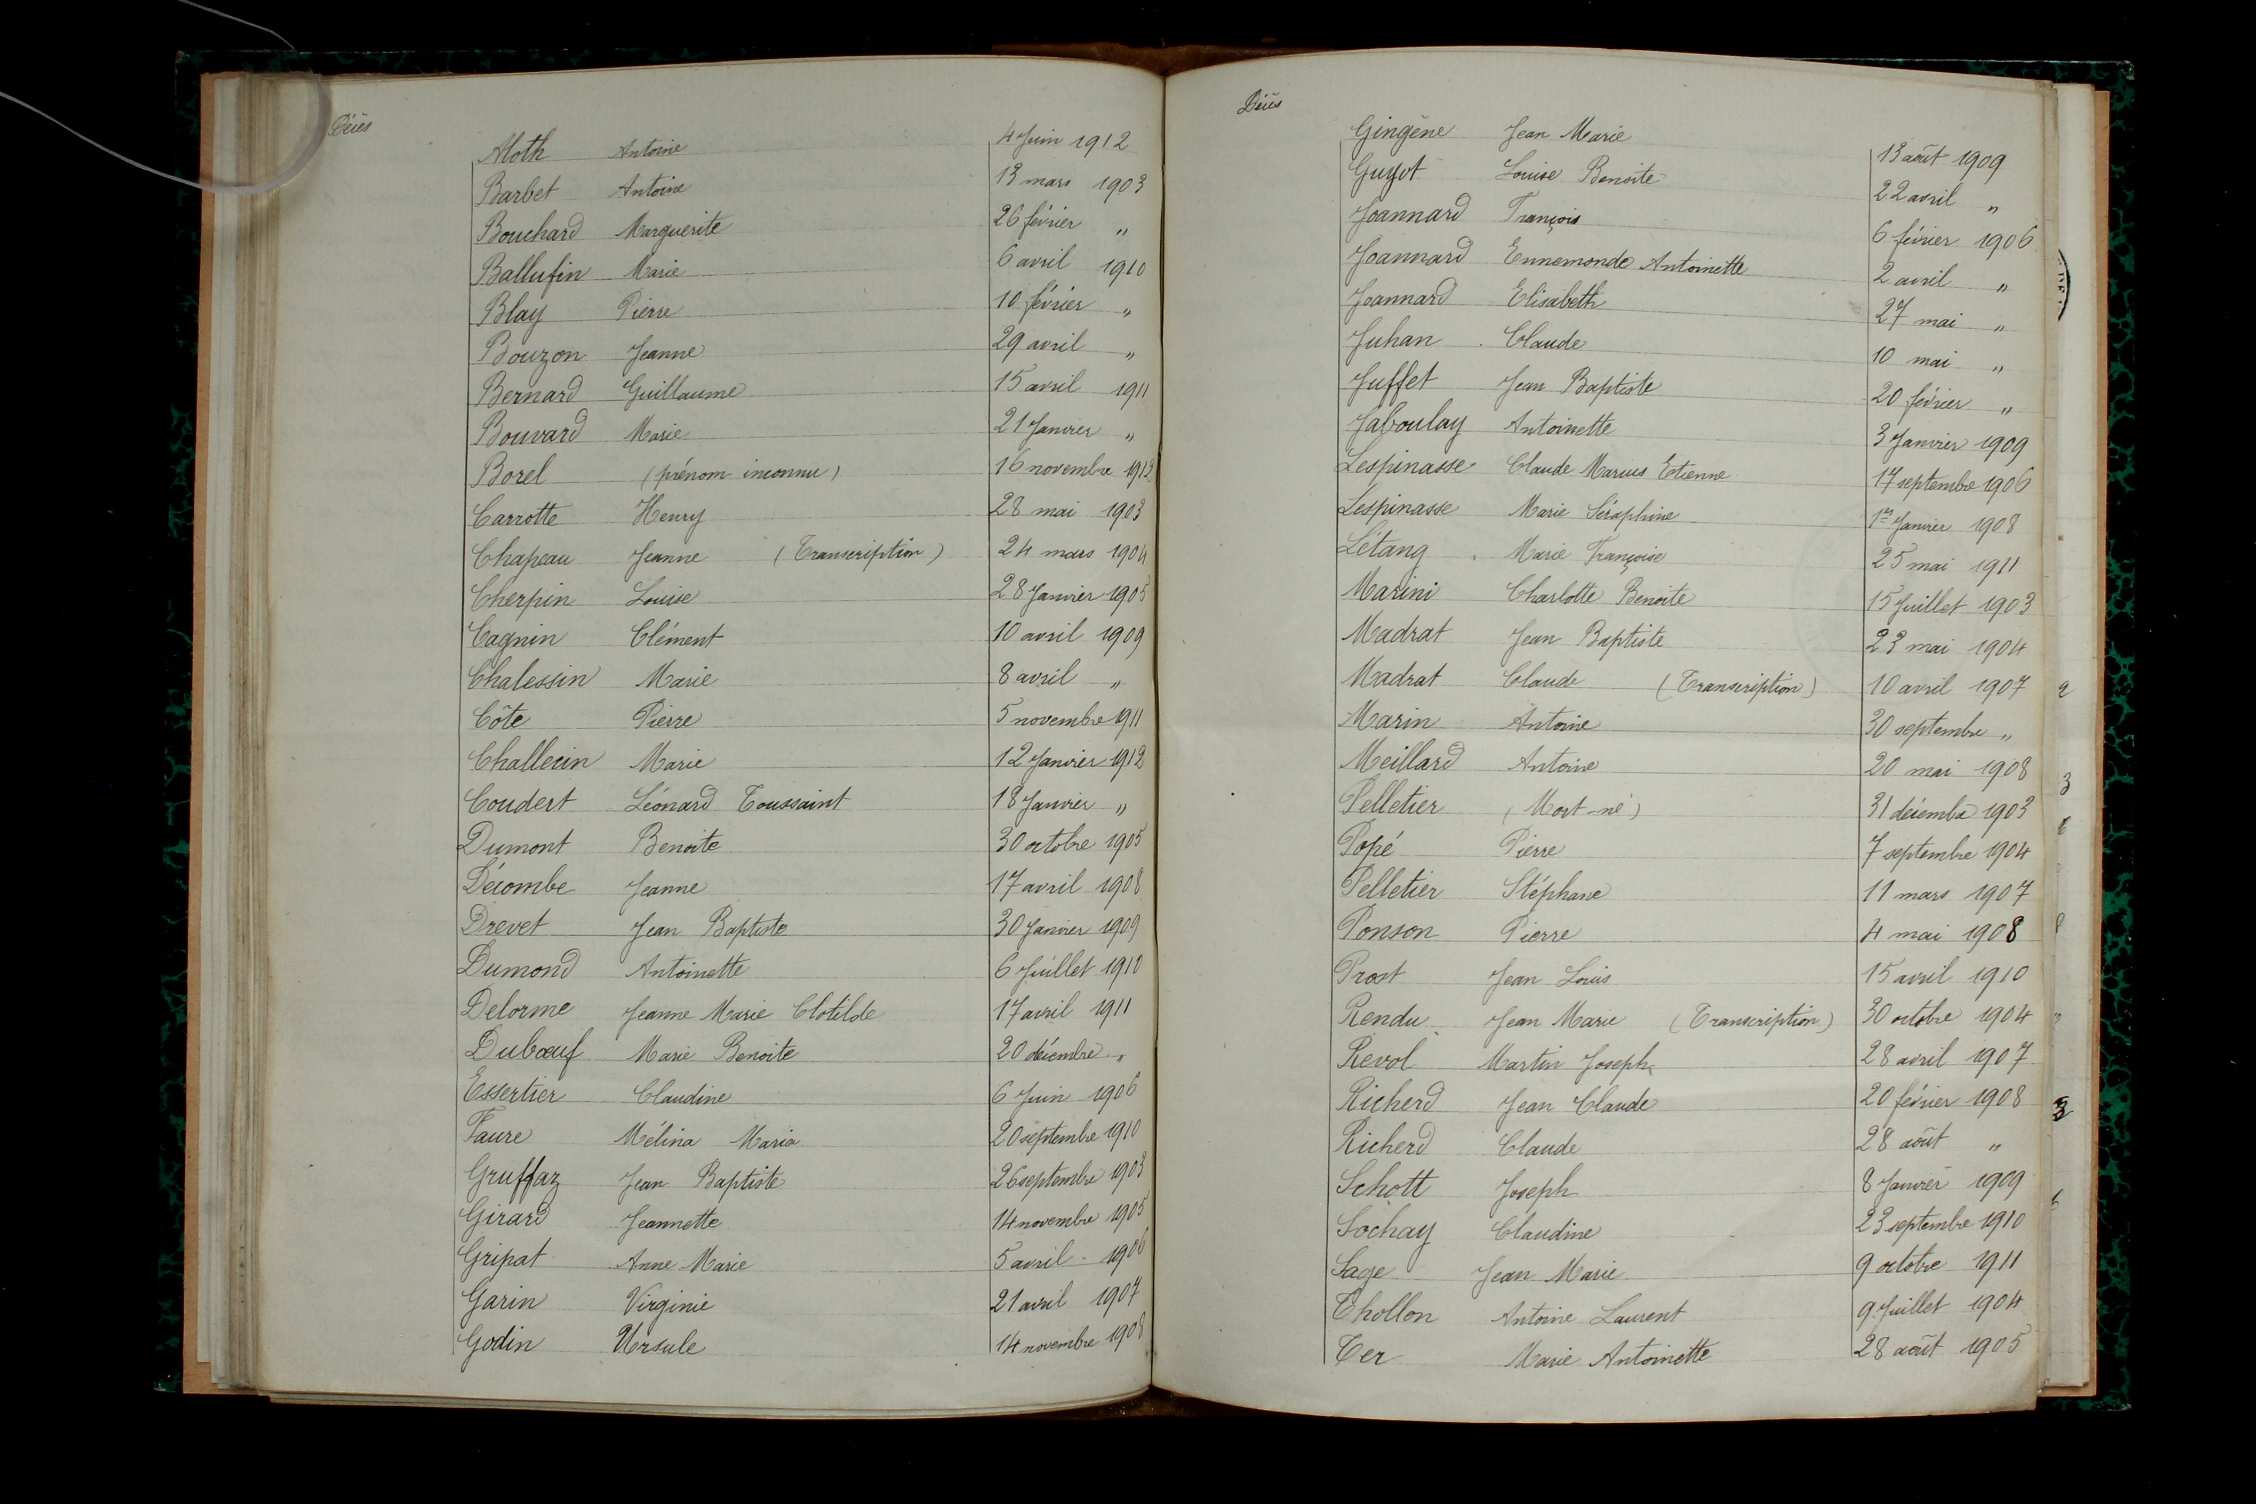 Décès
Aloth Antoine 4 Juin 1912
Barbet Antoine 13 mars 1903
Bouchard Marguerite 26 février "
Ballufin Marie 6 avril 1910
Blay Pierre 10 février "
Bouzon Jeanne 29 avril "
Bernard Guillaume 15 avril 1911
Bouvard Marie 21 Janvier "
Borel (prénom inconnu) 16 novembre
Carrotte Henry 28 mai 1903
Chapeau Jeanne (Transcription) 24 mars 1904
Cherpin Louise 28 Janvier 1905
Cagnin Clément 10 avril 1909
Chalessin Marie 8 avril "
Côte Pierre 5 novembre 1911
Challecin Marie 12 Janvier 1912
Coudert Léonard Toussaint 18 Janvier "
Dumont Benoite 30 octobre 1905
Décombe Jeanne 17 avril 1908
Drevet Jean Baptiste 30 Janvier 1909
Dumond Antoinette 6 Juillet 1910
Delorme Jeanne Marie Clotilde 17 avril 1911
Dubœuf Marie Benoite 20 décembre "
Essertier Claudine 6 Juin 1906
Faure Mélina Maria 20 septembre 1910
Gruffaz Jean Baptiste 26 septembre 1903
Girard Jeannette 14 novembre 1905
Gripat Anne Marie 5 avril 1906
Garin Virginie 21 avril 1907
Godin Ursule 14 novembre 1908
Décès
Gingène Jean Marie 13 août 1909
Guyot Louise Benoite 22 avril "
Joannard François 6 février 1906
Joannard Ennemonde Antoinette 2 avril "
Joannard Elisabeth 27 mai "
Juhan Claude 10 mai "
Juffet Jean Baptiste 20 février "
Jaboulay Antoinette 3 Janvier 1909
Lespinasse Claude Marius Etienne 17 septembre 1906
Lespinasse Marie Séraphine 1er Janvier 1908
Létang Marie Françoise 25 mai 1911
Marini Charlotte Benoite 15 Juillet 1903
Madrat Jean Baptiste 23 mai 1904
Madrat Claude (Transcription) 10 avril 1907
Marin Antoine 30 septembre "
Meillard Antoine 20 mai 1908
Pelletier (Mort-né) 31 décembre 1903
Popé Pierre 7 septembre 1904
Pelletier Stéphane 11 mars 1907
Ponson Pierre 4 mai 1908
Prost Jean Louis 15 avril 1910
Rendu Jean Marie (Transcription) 30 octobre 1904
Revol Martin Joseph 28 avril 1907
Richerd Jean Claude 20 février 1908
Richerd Claude 28 août "
Schott Joseph 8 Janvier 1909
Sochay Claudine 23 septembre 1910
Sage Jean Marie 9 octobre 1911
Thollon Antoine Laurent 9 Juillet 1904
Ter Marie Antoinette 28 août 1905